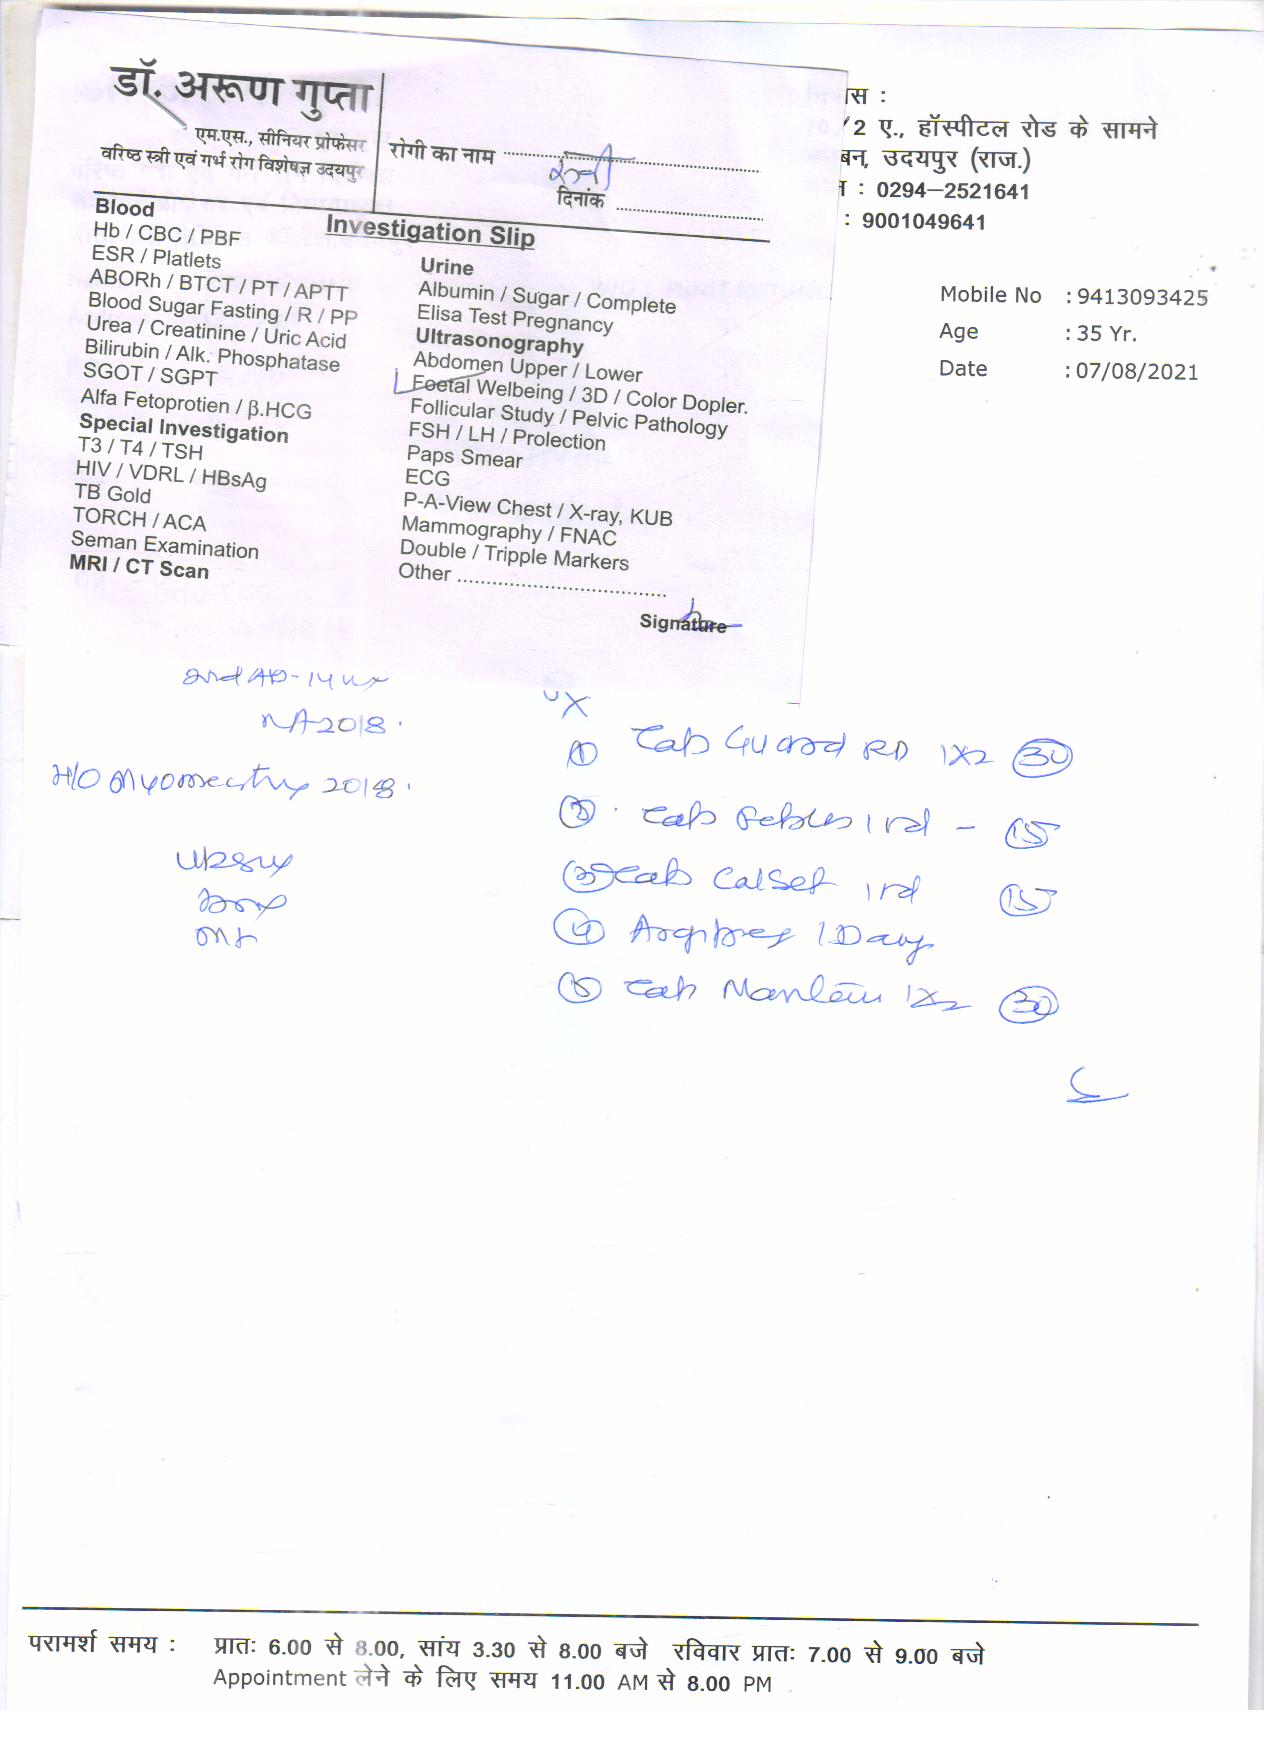 डॉ. अरूण गुप्ता
एम.एस., सीनियर प्रोफेसर
वरिष्ठ स्त्री एवं गर्भ रोग विशेषज्ञ उदयपुर
रोगी का नाम
दिनांक
Investigation Slip
Blood
Hb / CBC / PBF
ESR / Platlets
ABORh / BTCT / PT / APTT
Blood Sugar Fasting / R / PP
Urea / Creatinine / Uric Acid
Bilirubin / Alk. Phosphatase
SGOT / SGPT
Alfa Fetoprotien / β.HCG
Special Investigation
T3 / T4 / TSH
HIV / VDRL / HBsAg
TB Gold
TORCH / ACA
Seman Examination
MRI / CT Scan
Urine
Albumin / Sugar / Complete
Elisa Test Pregnancy
Ultrasonography
Abdomen Upper / Lower
Foetal Welbeing / 3D / Color Dopler.
Follicular Study / Pelvic Pathology
FSH / LH / Prolection
Paps Smear
ECG
P-A-View Chest / X-ray, KUB
Mammography / FNAC
Double / Tripple Markers
Other
Signature
ास :
/2 ए., हॉस्पीटल रोड के सामने
बन, उदयपुर (राज.)
: 0294-2521641
: 9001049641
Mobile No : 9413093425
Age : 35 Yr.
Date : 07/08/2021
2018
H/O 2018
① Tab RD 1X2 30
② Tab 1 rd - 15
③ Tab Calset 1 rd 15
④ 1 Day
⑤ Tab 1X2 30
परामर्श समय : प्रातः 6.00 से 8.00, सांय 3.30 से 8.00 बजे रविवार प्रातः 7.00 से 9.00 बजे
Appointment लेने के लिए समय 11.00 AM से 8.00 PM